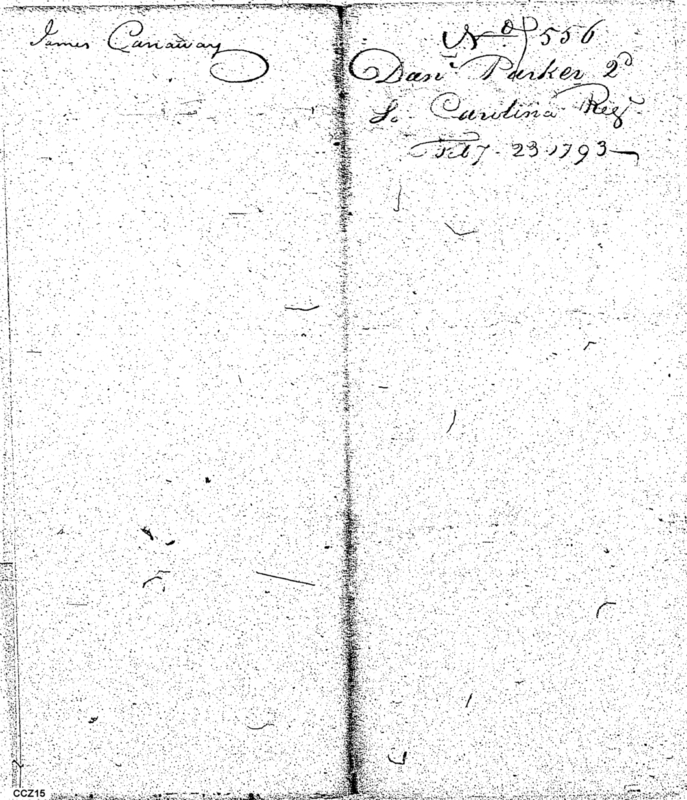 James Canaway
No 556
Danl Parker 2d
So Carolina Regt
Feby 23 1793
CCZ15